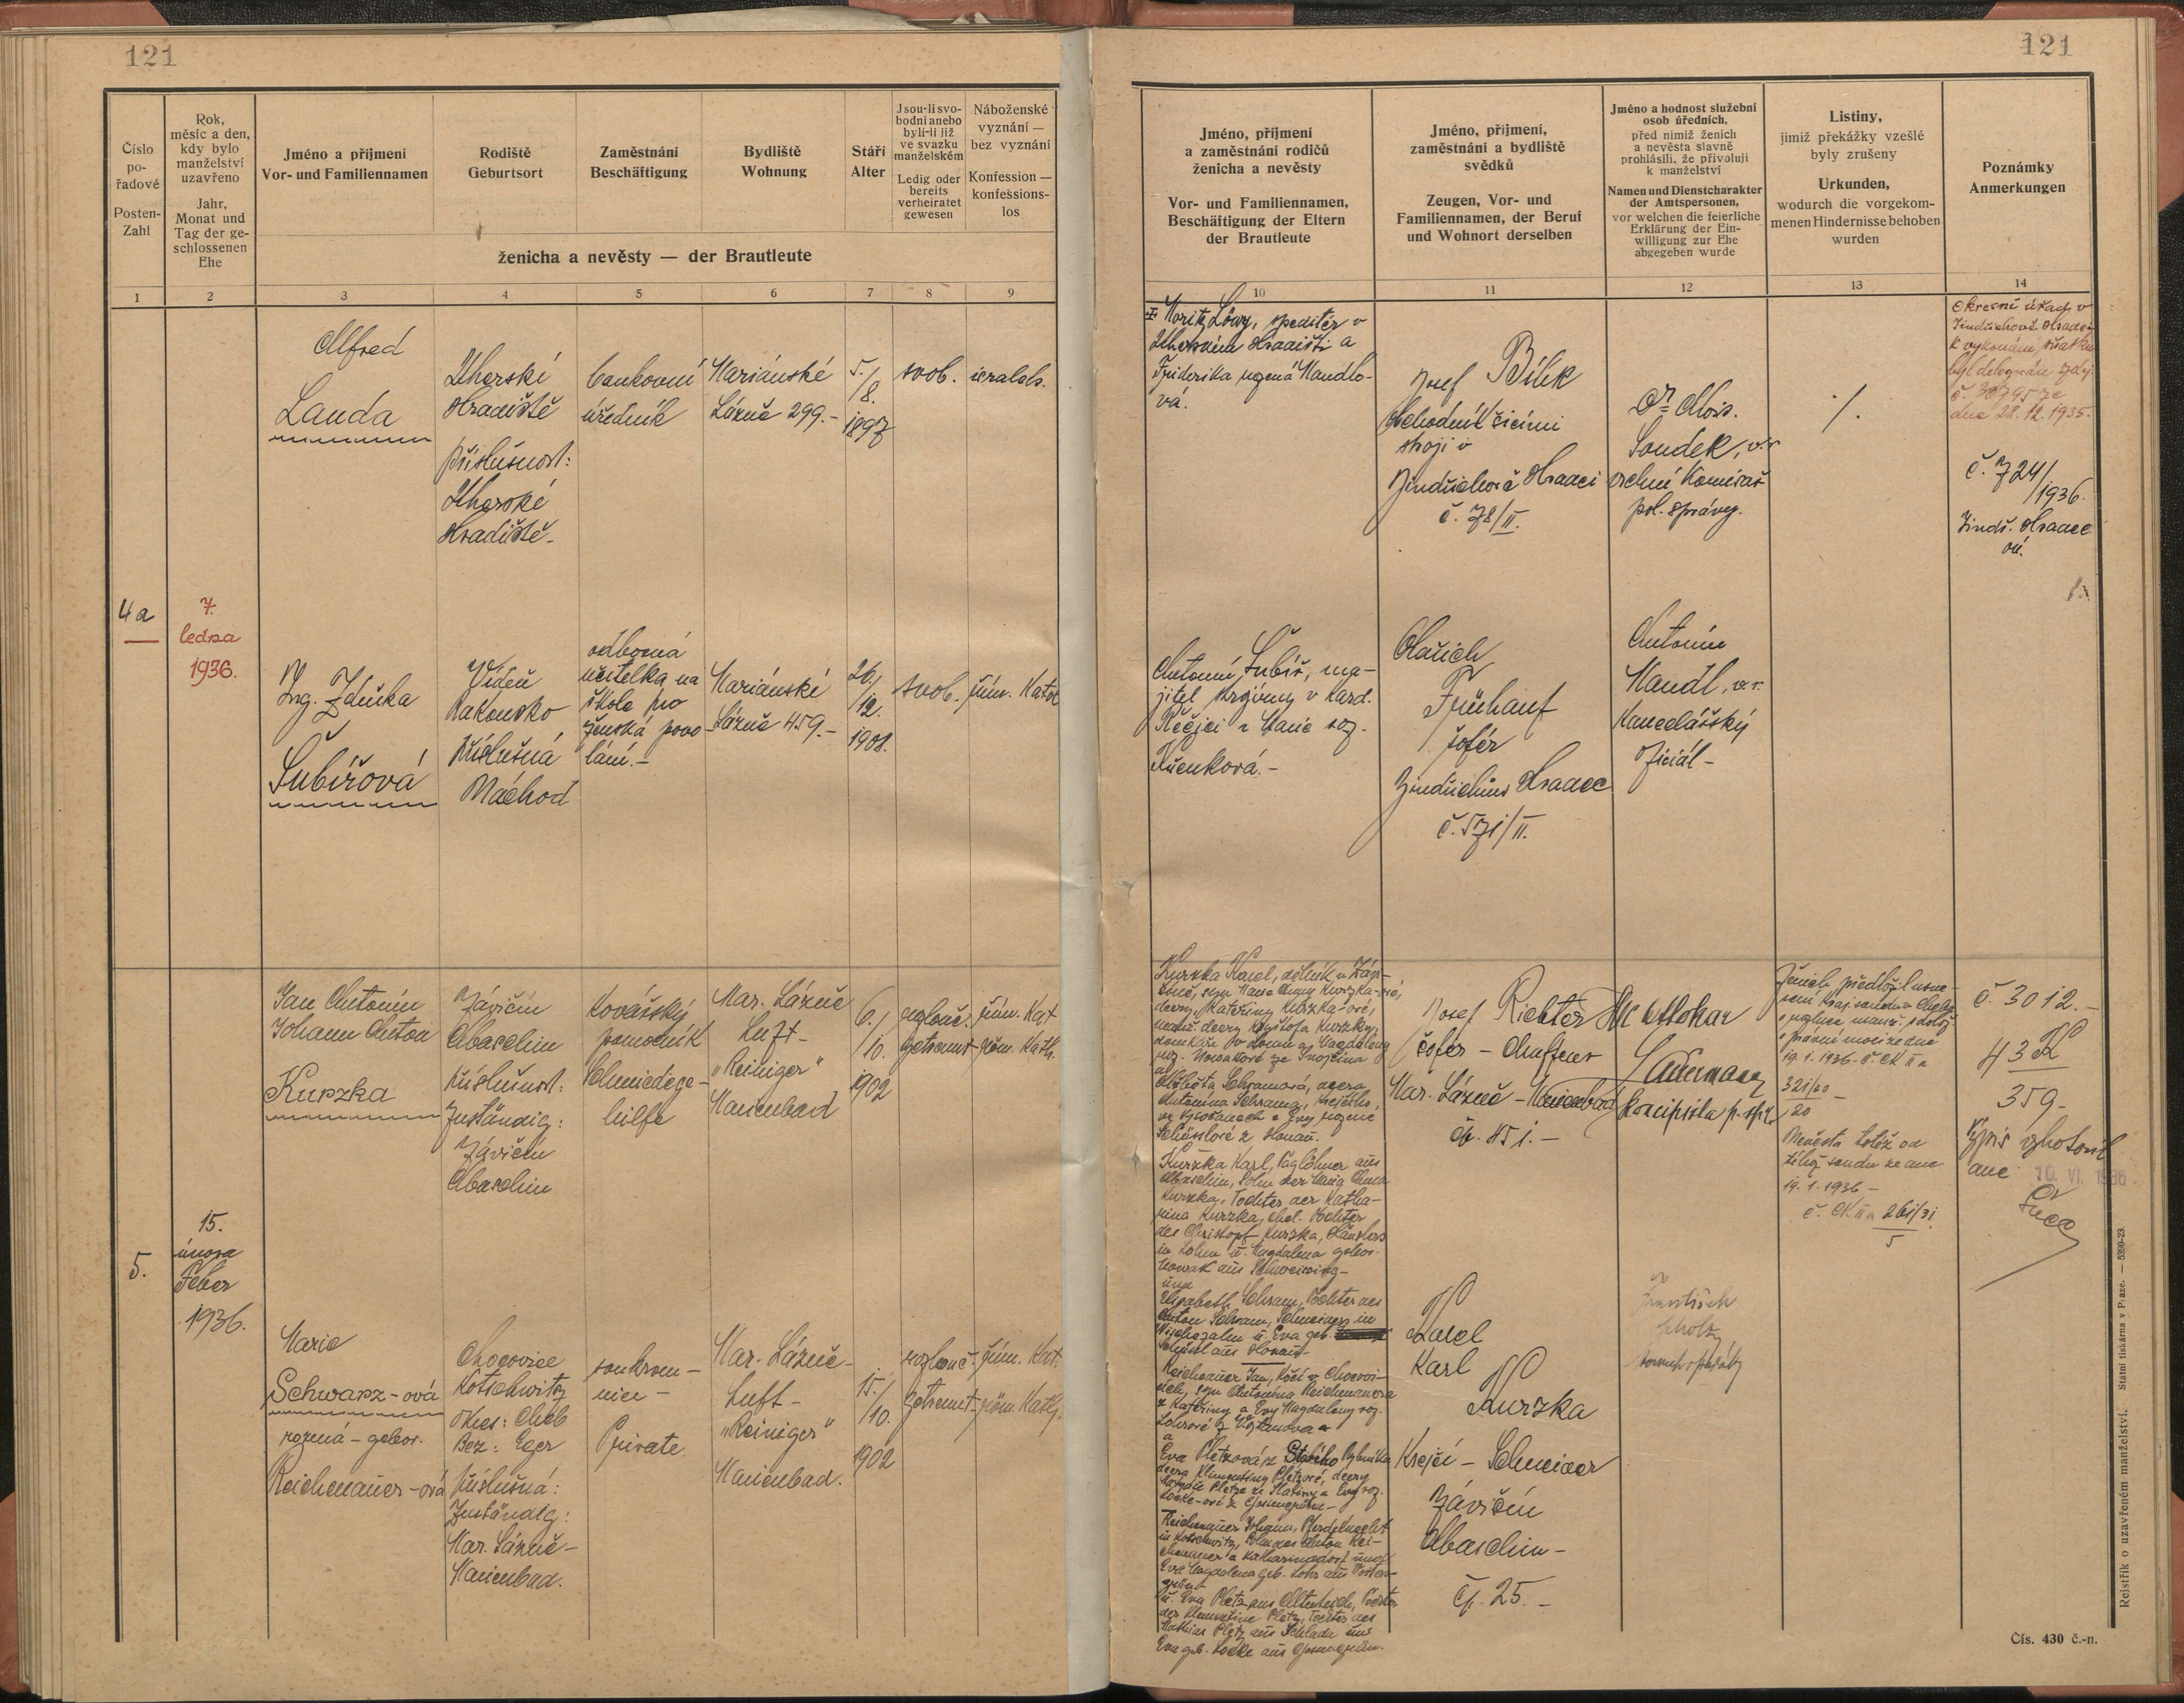 121
121
Číslo
po-
řadové
Posten-
Zahl
Rok,
měsíc a den,
kdy bylo
manželství
uzavřeno
Jahr,
Monat und
Tag der ge-
schlossenen
Ehe
Jméno a příjmení
Vor- und Familiennamen
Rodiště
Geburtsort
Zaměstnání
Beschäftigung
Bydliště
Wohnung
Stáří
Alter
Jsou-li svo-
bodni aneho
byli-li již
ve svazku
manželském
Ledig oder
bereits
verheiratet
gewesen
Náboženské
vyznání —
bez vyznání
Konfession —
konfessions-
los
ženicha a nevěsty — der Brautleute
Jméno, příjmení
a zaměstnání rodičů
ženicha a nevěsty
Vor- und Familiennamen,
Beschäftigung der Eltern
der Brautleute
Jméno, příjmení,
zaměstnání a bydliště
svědků
Zeugen, Vor- und
Familiennamen, der Beruf
und Wohnort derselben
Jméno a hodnost služební
osob úředních,
před nimiž ženich
a nevěsta slavně
prohlásili, že přivolují
k manželství
Namen und Dienstcharakter
der Amtspersonen,
vor welchen die feierliche
Erklärung der Ein-
willigung zur Ehe
abgegeben wurde
Listiny,
jimiž překážky vzešlé
byly zrušeny
Urkunden,
wodurch die vorgekom-
menen Hindernisse behoben
wurden
Poznámky
Anmerkungen
1 2 3 4 5 6 7 8 9 10 11 12 13 14
4a
7.
ledna
1936.
Alfred
Landa
Uherské
Hradiště
příslušnost:
Uherské
Hradiště.
bankovní
úředník
Mariánské
Lázně 299.-
5./
8.
1897
svob.
israels.
Moritz Löwy, speditér v
Uherském Hradišti a
Friderika rozená Mandlo-
vá.
Josef Bílek
obchodník šicími
stroji v
Jindřichově Hradci
č. 78/II.
Dr. Alois.
Soudek, v.r.
vrchní komisař
pol. správy.
./.
Okresní úřad v
Jindřichově Hradci
k vykonání sňatku
byl delegován
dne 28.12.1935.
č. 724/
1936.
Jindř. Hradec
Ing. Zdeňka
Šubířová
Vídeň
Rakousko
příslušná
Náchod
odborná
učitelka na
škole pro
ženská povo-
lání.-
Mariánské
Lázně 459.-
26./
12.
1908.
svob.
řím. kat.
Antonín Šubíř, ma-
jitel v Kard.
Řečici a Marie roz.
Oldřich
Frühauf
šofér
Jindřichův Hradec
č. 571/II.
Antonín
Mandl, v.r.
kancelářský
oficiál-
5.
15.
února
Feber
1936.
Jan Antonín
Johann Anton
Kurzka
Závišín
Abaschin
příslušnost:
Zuständig:
Závišín
Abaschin
kovářský
pomocník
Schmiedege-
hilfe
Mar. Lázně
Luft-
"Reiniger"
Marienbad
6./
10.
1902
rozlouč.
getrennt-
řím. kat
röm. kath.
Kurzka Karel, dělník v Závi-
šíně, syn Marie Anny Kurzka-ové,
dcery Kateřiny Kurzka-ové,
manž. dcery Kryštofa Kurzky,
domkáře v Lomu a Magdaleny
roz. Nowakové ze Svojšína
a
Alžběta Schramová, dcera
Antonína Schrama, krejčího
ve Vysočanech a Evy rozené
Schüsslové z Honau.
Kurzka Karl, Taglöhner aus
Abaschin, Sohn der Maria Anna
Kurzka, Tochter der Katha-
rina Kurzka, ehel. Tochter
des Christopf Kurzka, Häuslers
in Lohm u. Magdalena gebor.
Nowak aus Schweissing-
und
Elisabeth Schram, Tochter des
Anton Schram, Schneiders in
u. Eva geb.
aus Honau-
Josef Richter
šofér - Chaffeur
Mar. Lázně - Marienbad
čp. 451.-
koncipista
Ženich předložil usne-
sení kraj. soudu v Chebu
o rozluce manž. s dolož.
o právní moci ze dne
19.1.1936 č. Ck II a
321/20
20
Nevěsta totéž od
téhož soudu ze dne
19.1.1936-
č. Ck II a 261/31
5
č. 3012.-
43 K
359-
Výpis vyhotovil
dne 10. VI. 1936.
Marie
Schwarz-ová
rozená-gebor.
Reichenauer-ová
Chocovice
Kotschwitz
Okres: Cheb
Bez: Eger
příslušná:
Zuständig:
Mar. Lázně-
Marienbad.
soukrom-
nice-
Private
Mar. Lázně-
Luft-
"Reiniger"
Marienbad.
15./
10.
1902
rozlouč.
getrennt-
řím. kat.
röm. kath.
Reichenauer Jan, kočí v Chocovi-
cích, syn Antonína Reichenauera
z Kateřiny a Evy Magdaleny roz.
a
Eva Pletzová z Starého Rybníka
dcera Klementiny Pletzové, dcery
Reichenauer Johann, Pferdeknecht
in Kotschwitz, Sohn des Anton Rei-
chenauer a Katharinadorf und
Eva Magdalena geb.
u. Eva Pletz aus Altenteich, Tochter
der Klementine Pletz, Tochter des
Mathias Pletz aus Schlada und
Eva geb.
Karel
Karl
Kurzka
Krejčí - Schneider
Závišín
Abaschin-
čp. 25.-
František
Scholz
Rejstřík o uzavřeném manželství. Státní tiskárna v Praze. — 5390-23.
Čís. 430 č.-n.